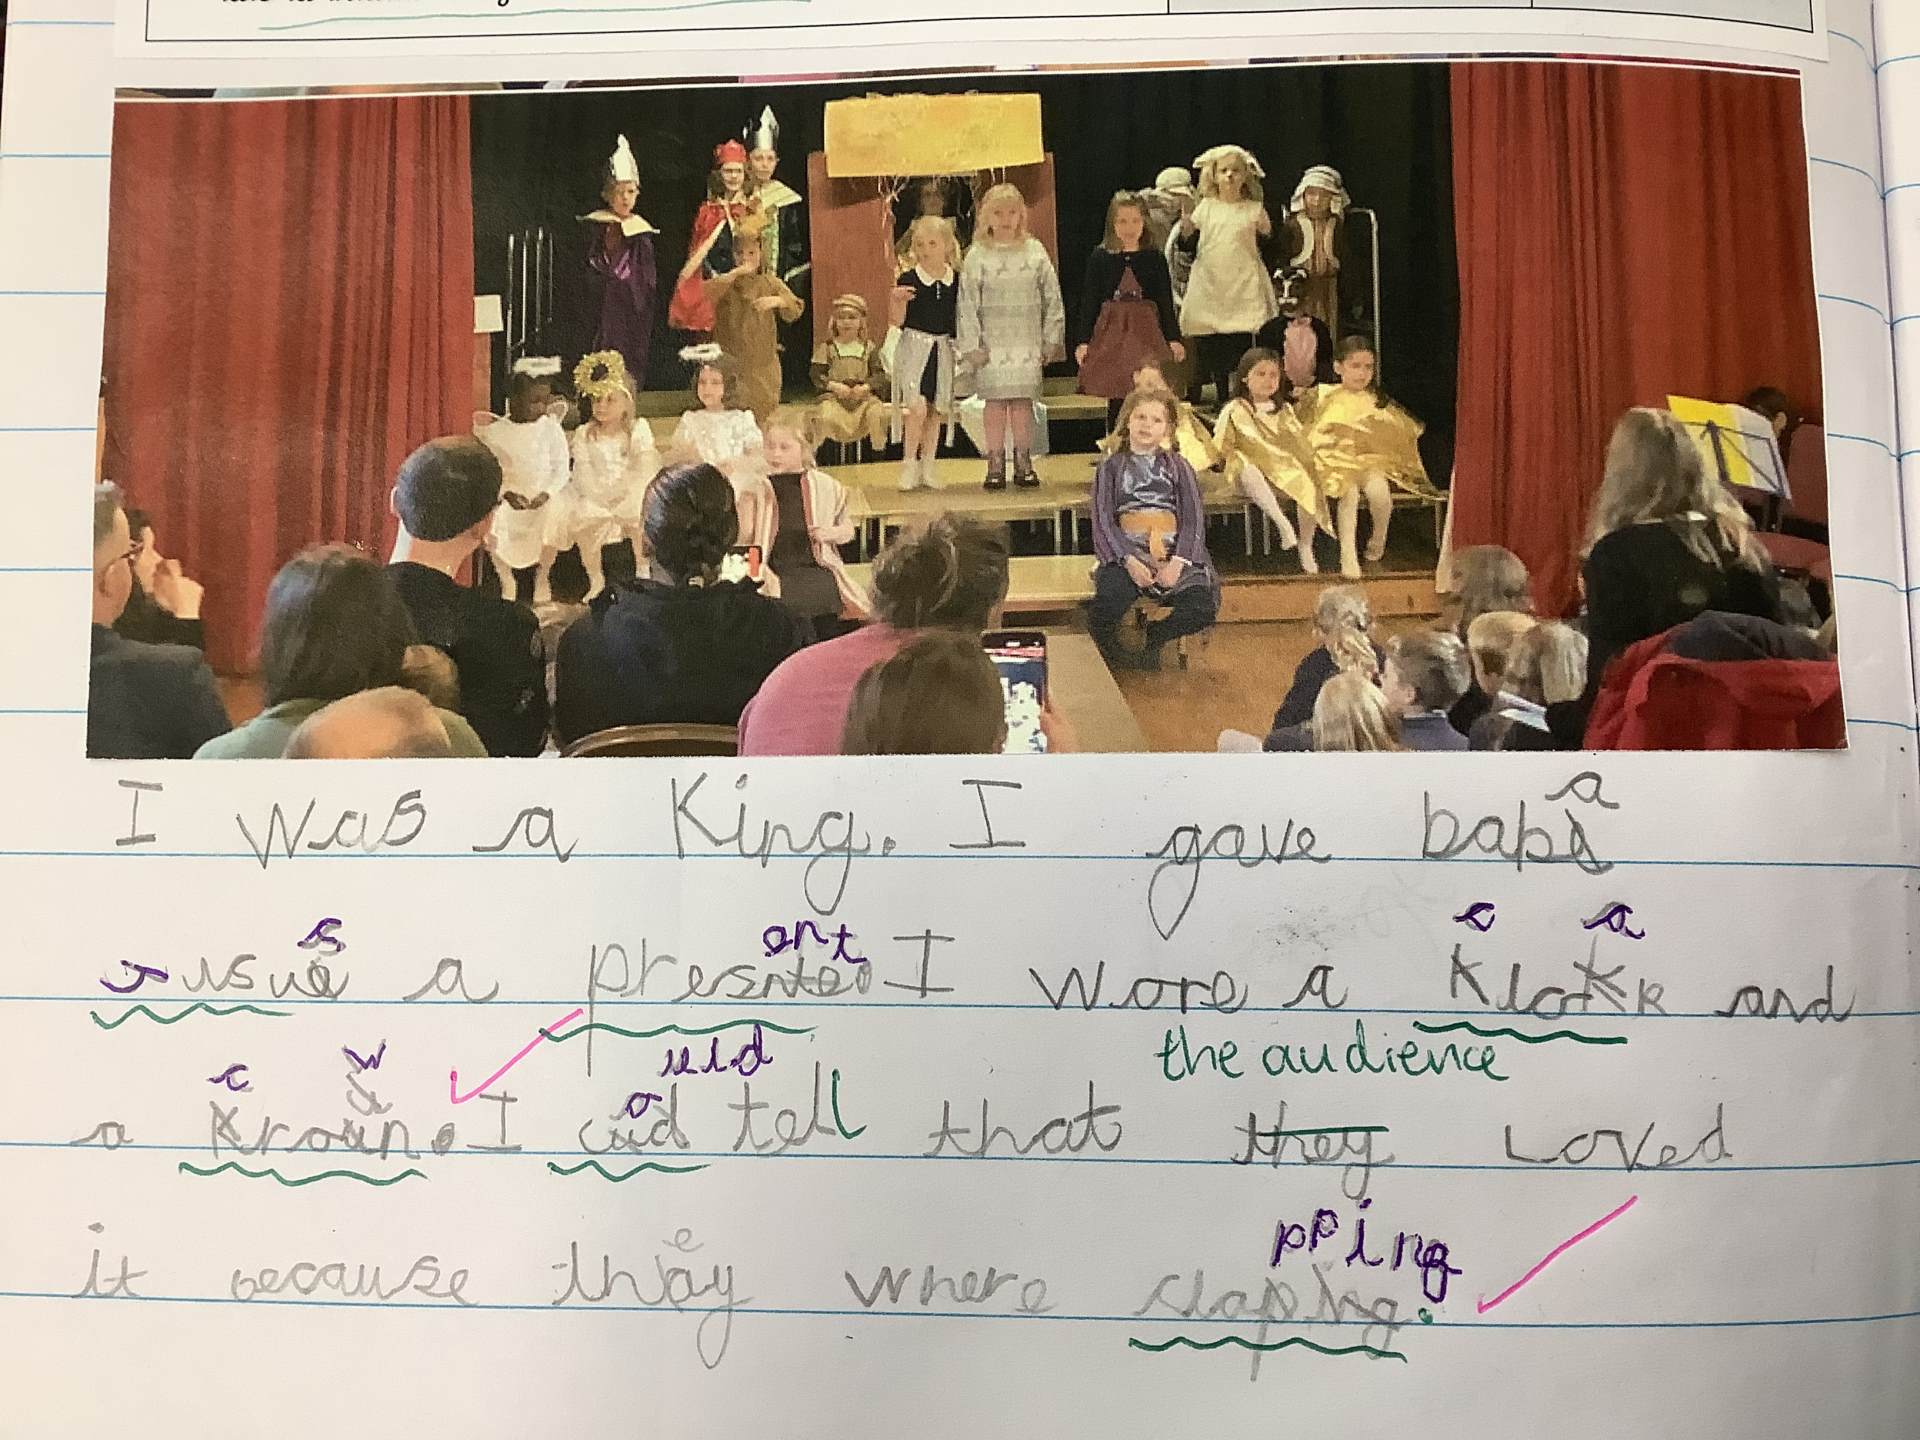 I was a King. I gave baba
a
jusue a presnte. I wore a klokk and
s ent c a
a kroun. I cud tell that they loved
c w o uld the audience
it because they where claping.
e pping